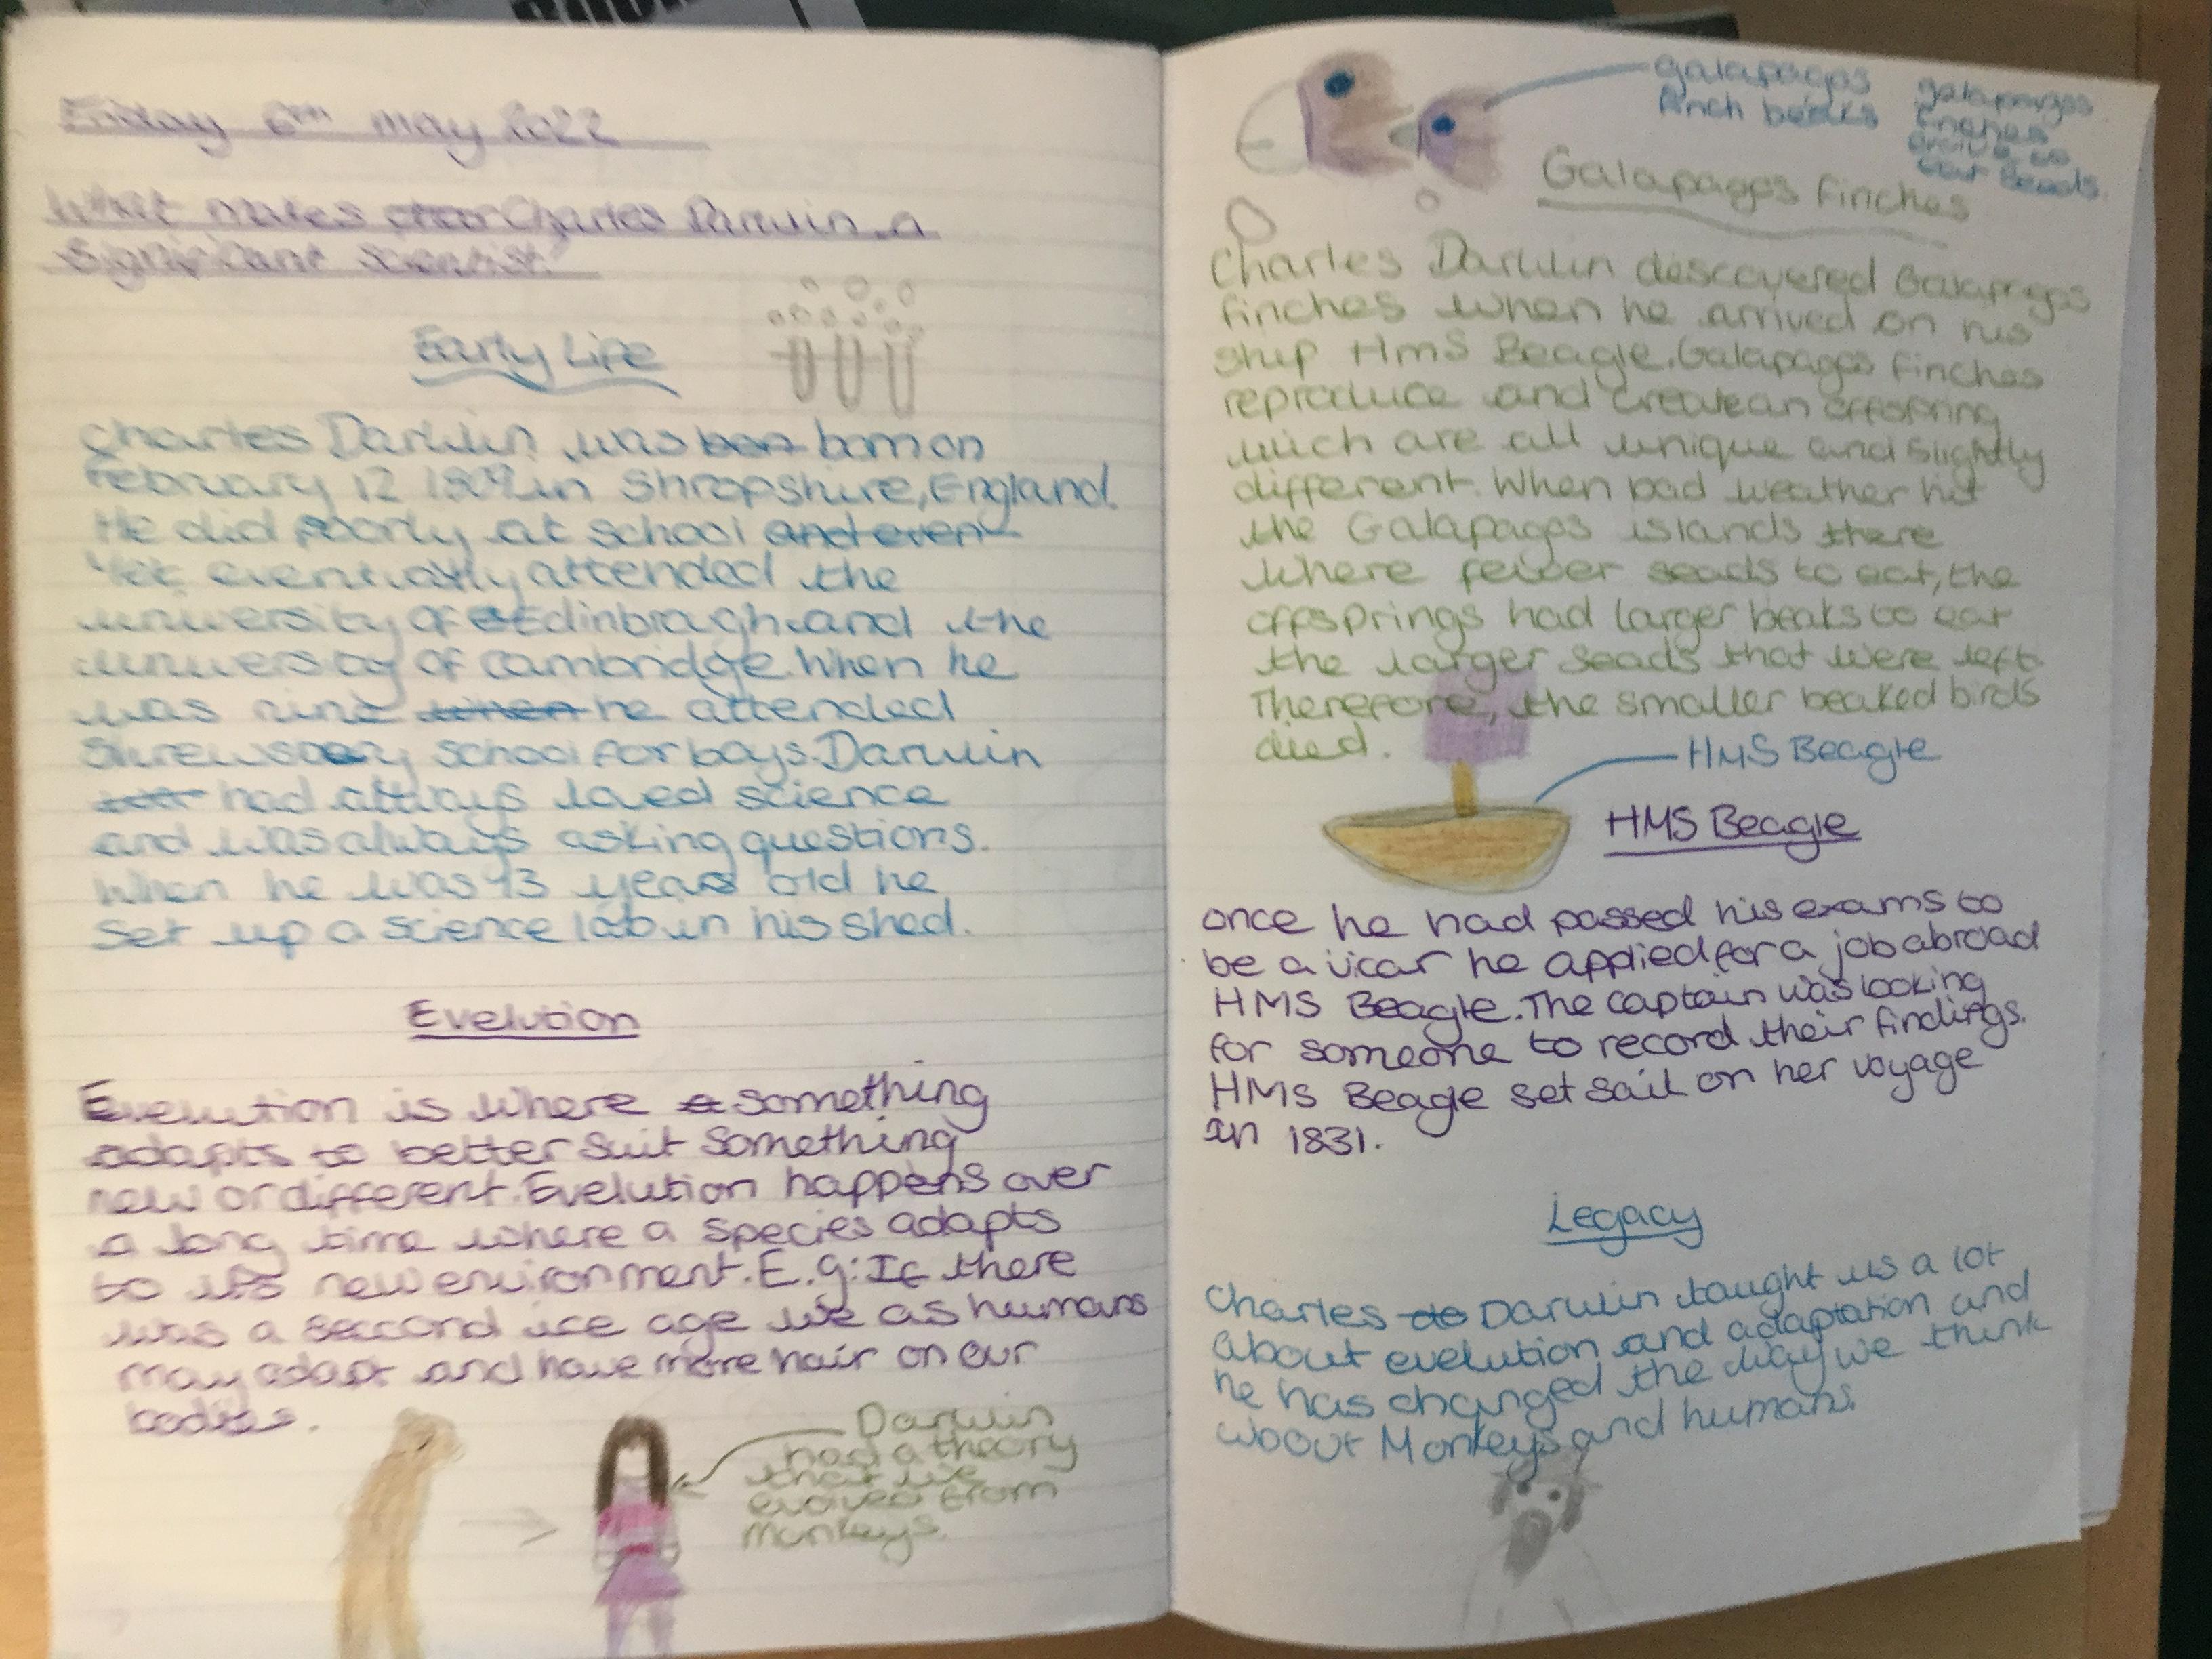 Friday 6th may 2022
What makes Charles Darwin a
significant scientist?
Early Life
Charles Darwin was born on
February 12 1809 in Shropshire, England.
He did poorly at school and even
Yet eventually attended the
university of Edinbragh and the
university of cambridge. When he
was nine when he attended
Shrewsbery school for boys. Darwin
had always loved science
and was always asking questions.
When he was 13 years old he
set up a science lab in his shed.
Evelution
Evelution is where a something
adapts to better suit something
new or different. Evelution happens over
a long time where a species adapts
to its new environment. E.g: If there
was a second ice age we as humans
may adapt and have more hair on our
bodies.
Darwin
had a theory
that we
evolved from
monkeys.
galapagos
finch beaks
galapagos
finches
to
eat seads.
Galapagos finches
Charles Darwin descovered Galapagos
finches when he arrived on his
ship HmS Beagle. Galapagos finches
reproduce and create an offspring
wich are all unique and slightly
different. When bad weather hit
the Galapagos islands there
where fewer seads to eat, the
offsprings had larger beaks to eat
the larger seads that were left.
Therefore, the smaller beaked birds
died.
HMS Beagle
HMS Beagle
once he had passed his exams to
be a vicar he applied for a job abroad
HMS Beagle. The captain was looking
for someone to record their findings.
HMS Beagle set sail on her voyage
in 1831.
Legacy
Charles de Darwin taught us a lot
about evelution and adaptation and
he has changed the way we think
about Monkeys and humans.